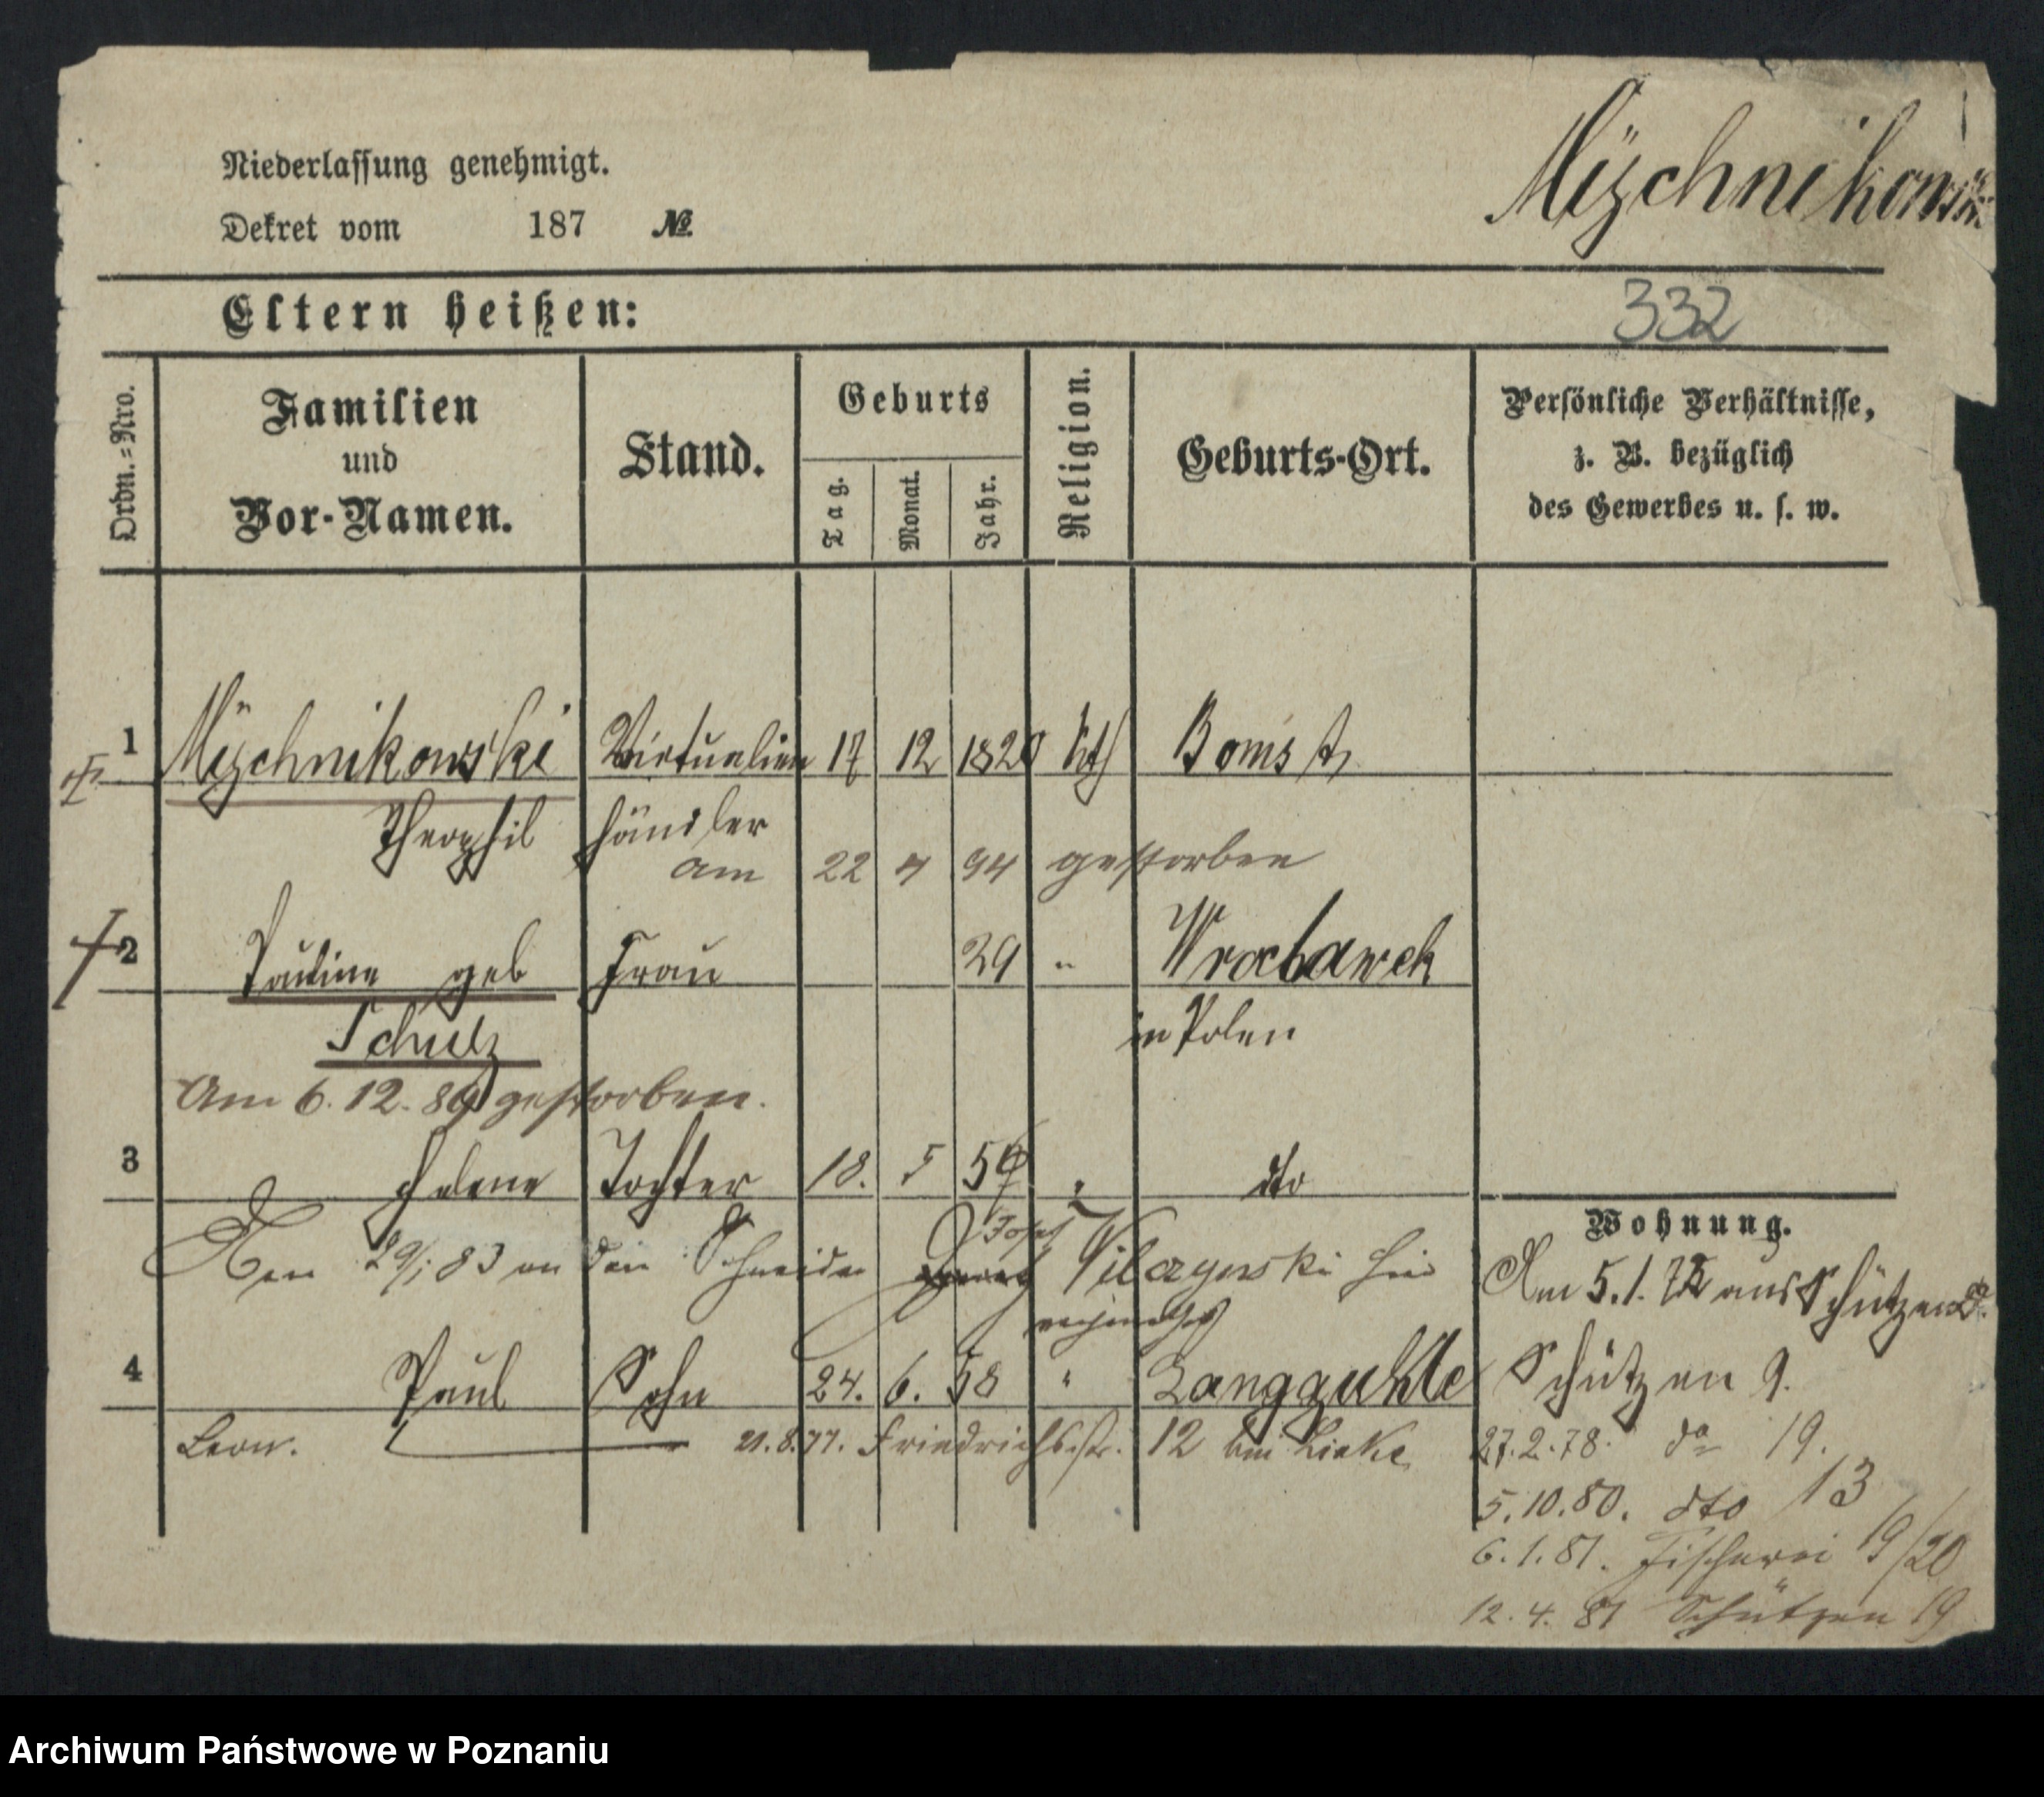 Niederlassung genehmigt.
Mÿschnikowski
Dekret vom 187 №
Eltern heißen:
332
Ordn.=Nro.
Familien
und
Vor-Namen.
Stand.
Geburts
Tag.
Monat.
Jahr.
Religion.
Geburts-Ort.
Persönliche Verhältnisse,
z. B. bezüglich
des Gewerbes u. s. w.
1 Mÿschnikowski Victualien 17 12 1820 kth Bomst
Theophil händler
am 22 4 94 gestorben
2 Pauline geb Frau 29 " Wroclawek
Schulz in Polen
Am 6.12.89 gestorben.
3 Helene Tochter 18. 5 " dto
Wohnung.
29/1 83 an den Schneider Josef Vilczynski hier
Am 5.1. aus Schützen
4 Paul Sohn 24. 6. 58 " Langguhle
Schützen 9.
Leon. 21.8.77. Friedrichsstr. 12 bei Linke
27.2.78. do 19.
5.10.80. dto 13
6.1.81. Fischerei 19/20
12.4.81 Schützen 19
Archiwum Państwowe w Poznaniu